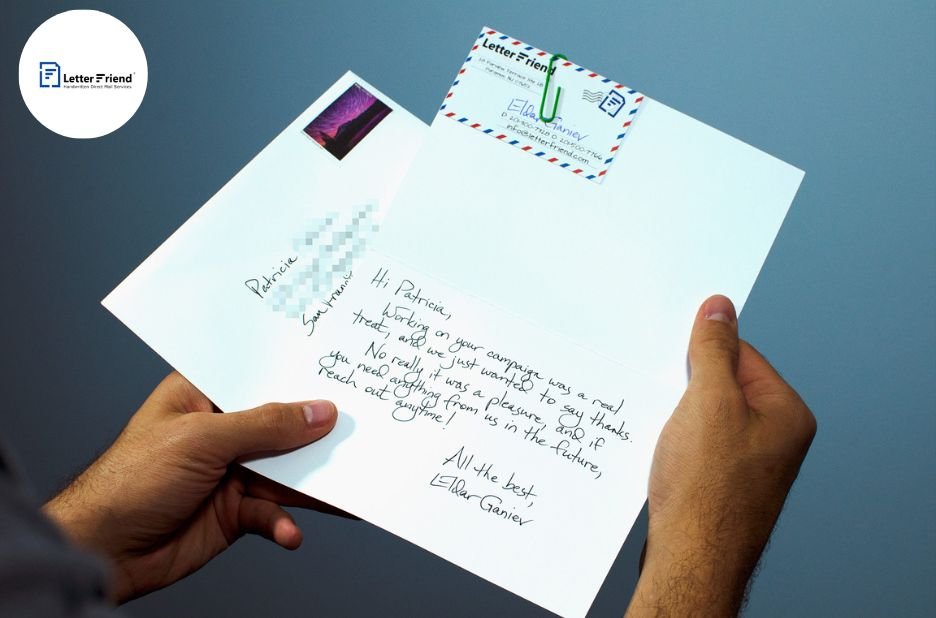 Letter Friend
Handwritten Direct Mail Services
Letter Friend
Eldar Ganiev
info@letterfriend.com
Patricia
San
Hi Patricia,
Working on your campaign was a real
treat, and we just wanted to say thanks.
No really it was a pleasure, and if
you need anything from us in the future,
reach out anytime!
All the best,
Eldar Ganiev